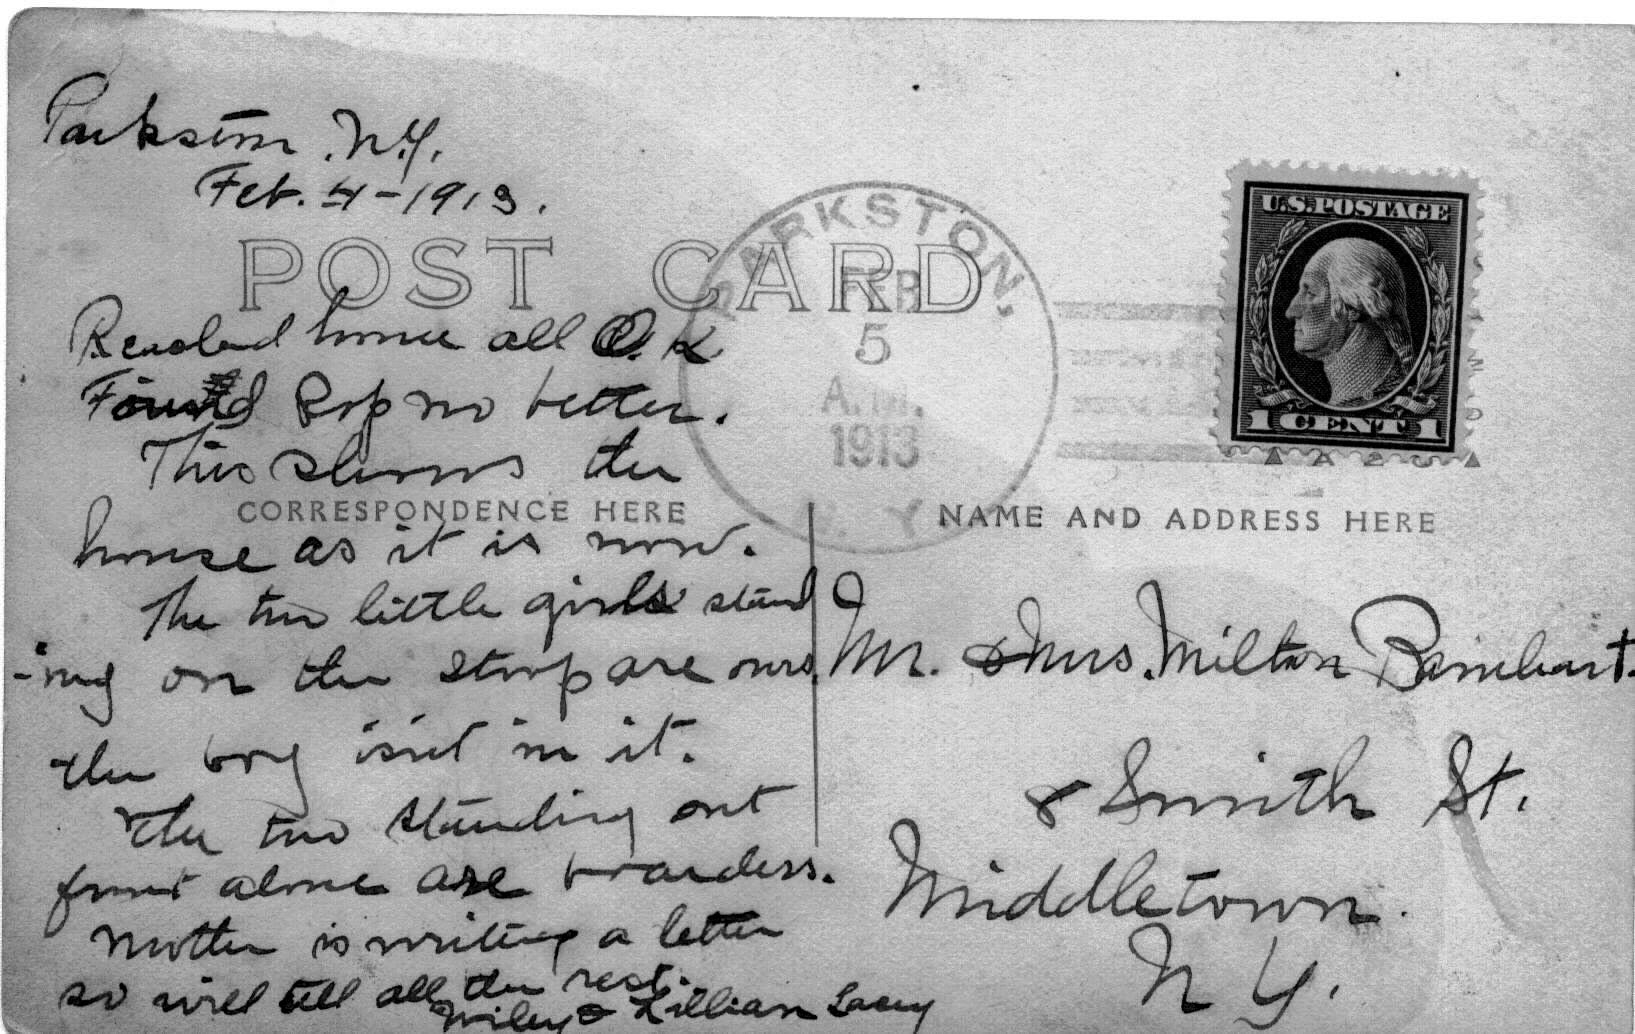 Parkston, N.Y.
Feb. 4-1913.
POST CARD
PARKSTON,
FEB
5
A.M.
1913
N.Y.
U.S. POSTAGE
1 CENT 1
Reached home all O.K
Found Pop no better.
This shows the
CORRESPONDENCE HERE
NAME AND ADDRESS HERE
house as it is now.
The two little girls stand
-ing on the stoop are ours.
the boy isn't in it.
The two standing out
front alone are boarders.
Mother is writing a letter
so will tell all the rest.
Wiley & Lillian Lacey
Mr. & Mrs. Milton Barnhart.
8 Smith St.
Middletown.
N Y.